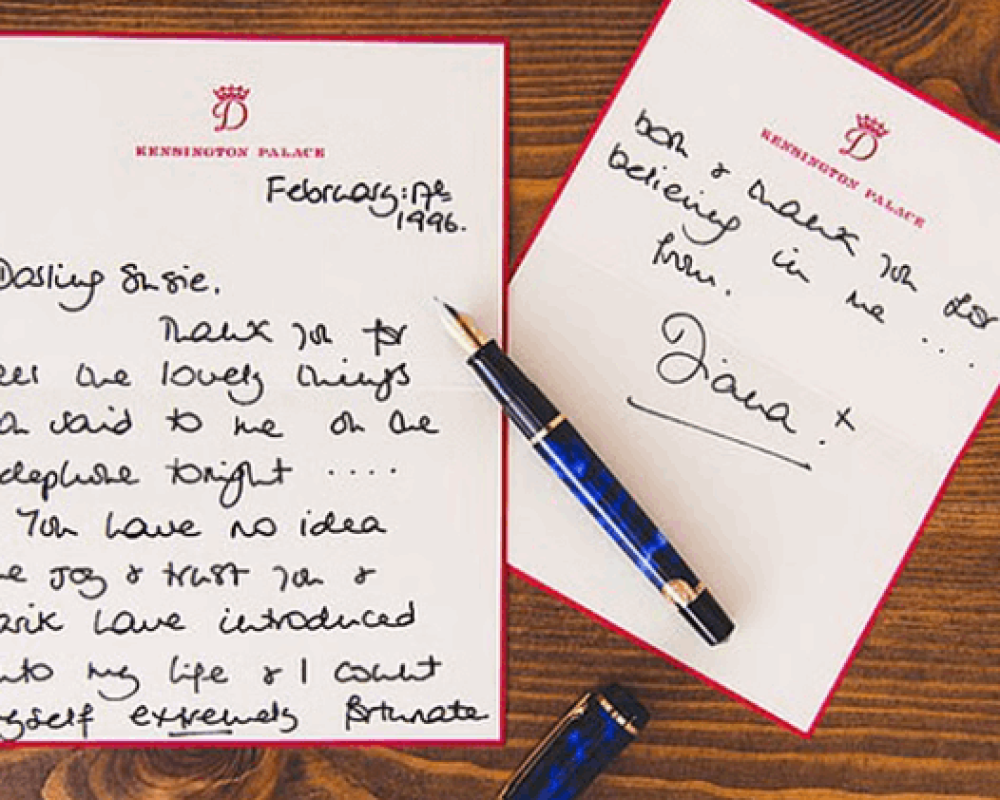 D
KENSINGTON PALACE
February: 17th
1996.
Darling Susie,
Thank you for
all the lovely things
said to me on the
telephone tonight ....
You have no idea
the joy & trust you &
have introduced
into my life & I count
myself extremely fortunate
D
KENSINGTON PALACE
both & thank you for
believing in me ....
from.
Diana. x